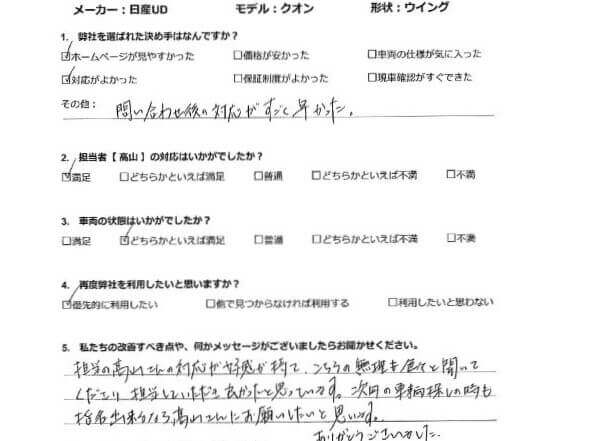 メーカー：日産UD　モデル：クオン　形状：ウイング
1. 弊社を選ばれた決め手はなんですか？
☑ホームページが見やすかった　□価格が安かった　□車両の仕様が気に入った
☑対応がよかった　□保証制度がよかった　□現車確認がすぐできた
その他：　問い合わせ後の対応がすごく早かった。
2. 担当者【高山】の対応はいかがでしたか？
☑満足　□どちらかといえば満足　□普通　□どちらかといえば不満　□不満
3. 車両の状態はいかがでしたか？
□満足　☑どちらかといえば満足　□普通　□どちらかといえば不満　□不満
4. 再度弊社を利用したいと思いますか？
☑優先的に利用したい　□他で見つからなければ利用する　□利用したいと思わない
5. 私たちの改善すべき点や、何かメッセージがございましたらお聞かせください。
担当の高山さんの対応が好感が持て、こちらの無理も色々と聞いて
くださり担当していただき良かったと思っています。次回の車輌探しの時も
指名出来るなら高山さんにお願いしたいと思います。
ありがとうございました。